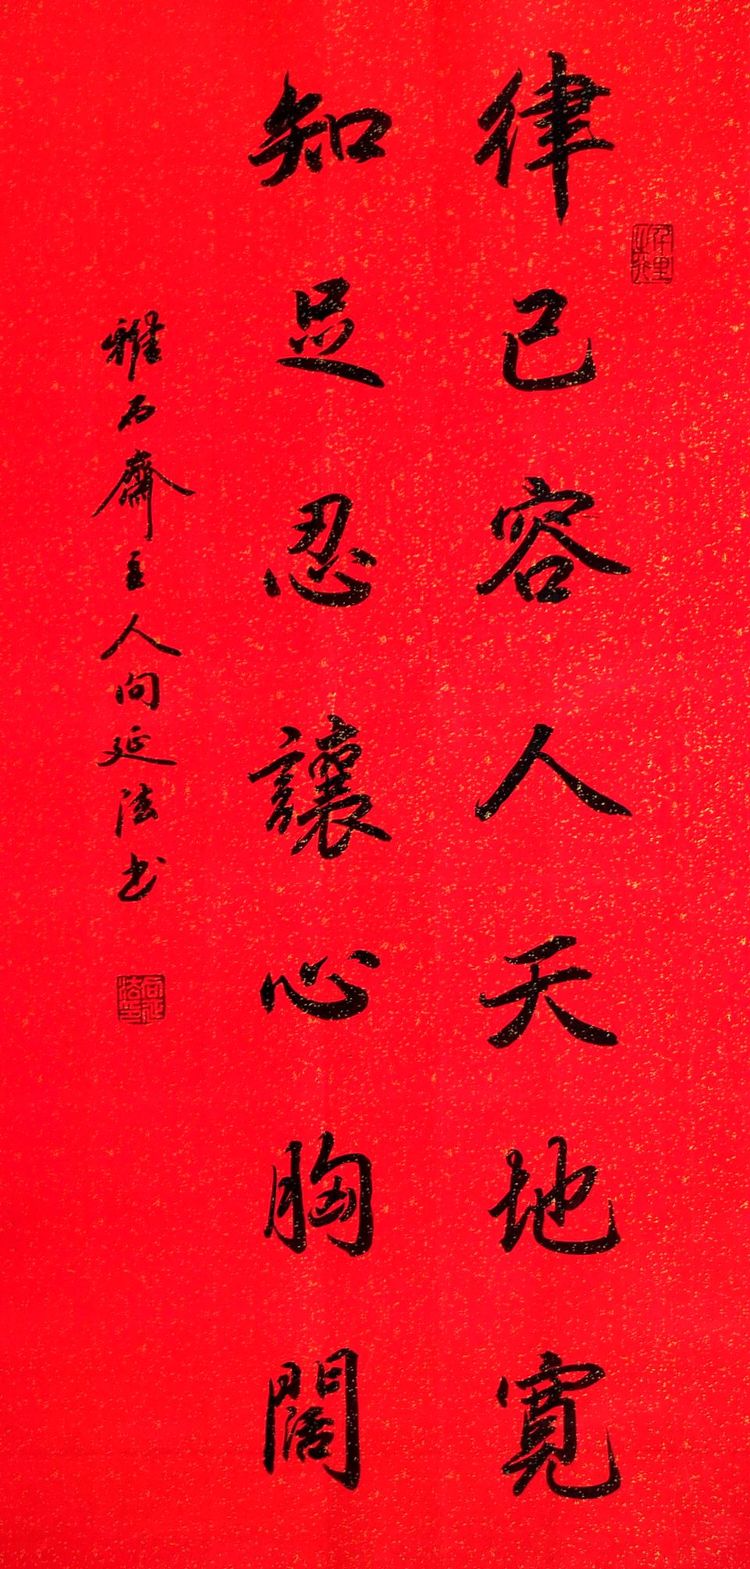 律己容人天地寬
知足忍讓心胸闊
雅石齋主人向延法书